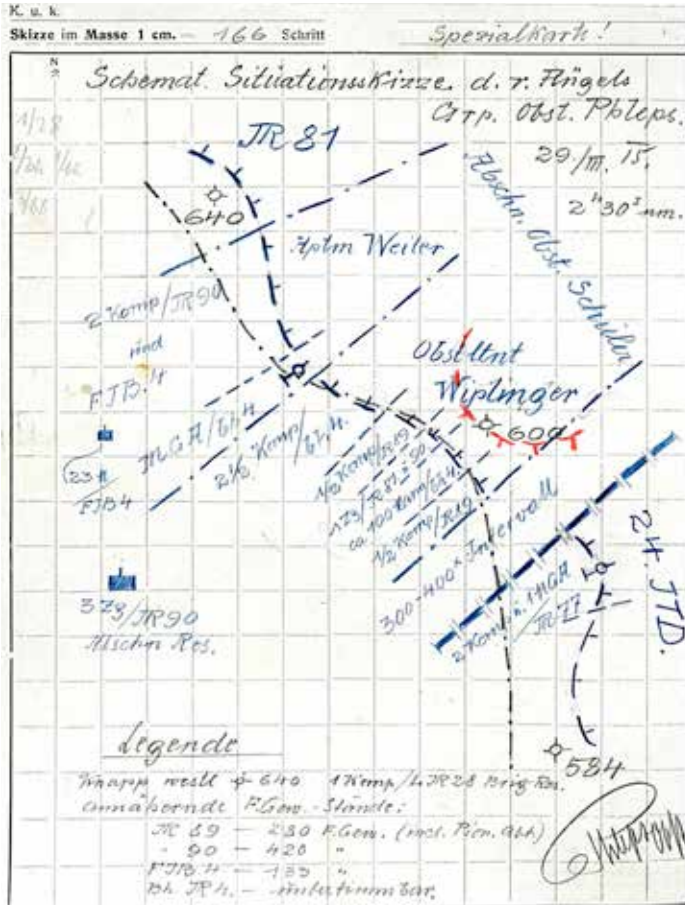 K. u. k.
Skizze im Masse 1 cm. — 166 Schritt
Spezialkarte!
N
Schemat. Situationsskizze d. r. Flügels
Grp. Obst. Phleps.
29/III. 15.
2ʰ30ˢ nm.
IR 81
640
Hptm Weiler
Abschn. Obst. Schüler
2 Komp/IR90
und
FJB.4
Obstltnt
Wiplinger
609
MGA/bh.4
2½ Komp/bh.4.
23
FJB4
1/2 Komp/IR89
1 Zg/IR81 u 90
ca. 100 Mann/bh4
1/2 Komp/IR19
300-400ˣ Intervall
24. ITD.
2 Komp. u. 1 MGA
IR 77
3 Zg/IR90
Abschn Res.
584
Legende
Knapp westl 640 1 Komp/L.IR28 Brig Res.
annähernde F.Gew.-Stände:
IR 89 — 280 F.Gew. (incl. Pion. Abt)
" 90 — 420 "
FJB.4 — 133 "
Bh. IR 4. — unbestimmbar.